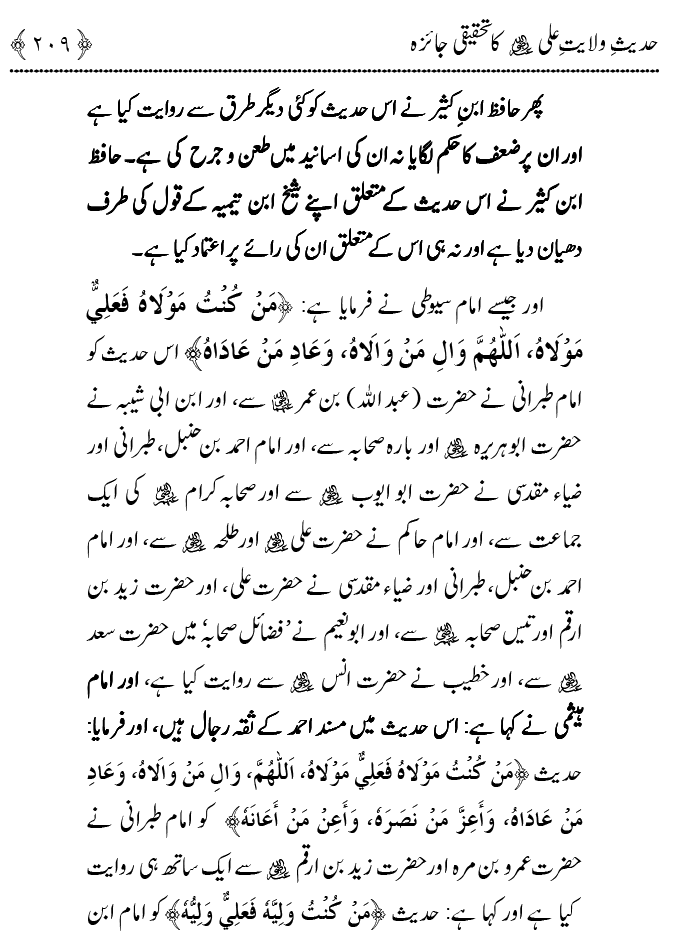 حدیثِ ولایتِ علی ؓ کا تحقیقی جائزہ ﴿۲۰۹﴾
پھر حافظ ابنِ کثیر نے اس حدیث کو کئی دیگر طرق سے روایت کیا ہے
اور ان پر ضعف کا حکم لگایا نہ ان کی اسانید میں طعن و جرح کی ہے۔ حافظ
ابن کثیر نے اس حدیث کے متعلق اپنے شیخ ابن تیمیہ کے قول کی طرف
دھیان دیا ہے اور نہ ہی اس کے متعلق ان کی رائے پر اعتماد کیا ہے۔
اور جیسے امام سیوطی نے فرمایا ہے: ﴿مَنْ كُنْتُ مَوْلَاهُ فَعَلِيٌّ
مَوْلَاهُ، اَللّٰهُمَّ وَالِ مَنْ وَالَاهُ، وَعَادِ مَنْ عَادَاهُ﴾ اس حدیث کو
امام طبرانی نے حضرت (عبد اللہ) بن عمر ؓ سے، اور ابن ابی شیبہ نے
حضرت ابو ہریرہ ؓ اور بارہ صحابہ سے، اور امام احمد بن حنبل، طبرانی اور
ضیاء مقدسی نے حضرت ابو ایوب ؓ سے اور صحابہ کرام ؓ کی ایک
جماعت سے، اور امام حاکم نے حضرت علی ؓ اور طلحہ ؓ سے، اور امام
احمد بن حنبل، طبرانی اور ضیاء مقدسی نے حضرت علی، اور حضرت زید بن
ارقم اور تیس صحابہ ؓ سے، اور ابو نعیم نے ’فضائل صحابہ‘ میں حضرت سعد
ؓ سے، اور خطیب نے حضرت انس ؓ سے روایت کیا ہے، اور امام
ہیثمی نے کہا ہے: اس حدیث میں مسند احمد کے ثقہ رجال ہیں، اور فرمایا:
حدیث ﴿مَنْ كُنْتُ مَوْلَاهُ فَعَلِيٌّ مَوْلَاهُ، اَللّٰهُمَّ، وَالِ مَنْ وَالَاهُ، وَعَادِ
مَنْ عَادَاهُ، وَأَعِزَّ مَنْ نَصَرَهٗ، وَأَعِنْ مَنْ أَعَانَهٗ﴾ کو امام طبرانی نے
حضرت عمرو بن مرہ اور حضرت زید بن ارقم ؓ سے ایک ساتھ ہی روایت
کیا ہے اور کہا ہے: حدیث ﴿مَنْ كُنْتُ وَلِيَّهٗ فَعَلِيٌّ وَلِيُّهٗ﴾ کو امام ابن